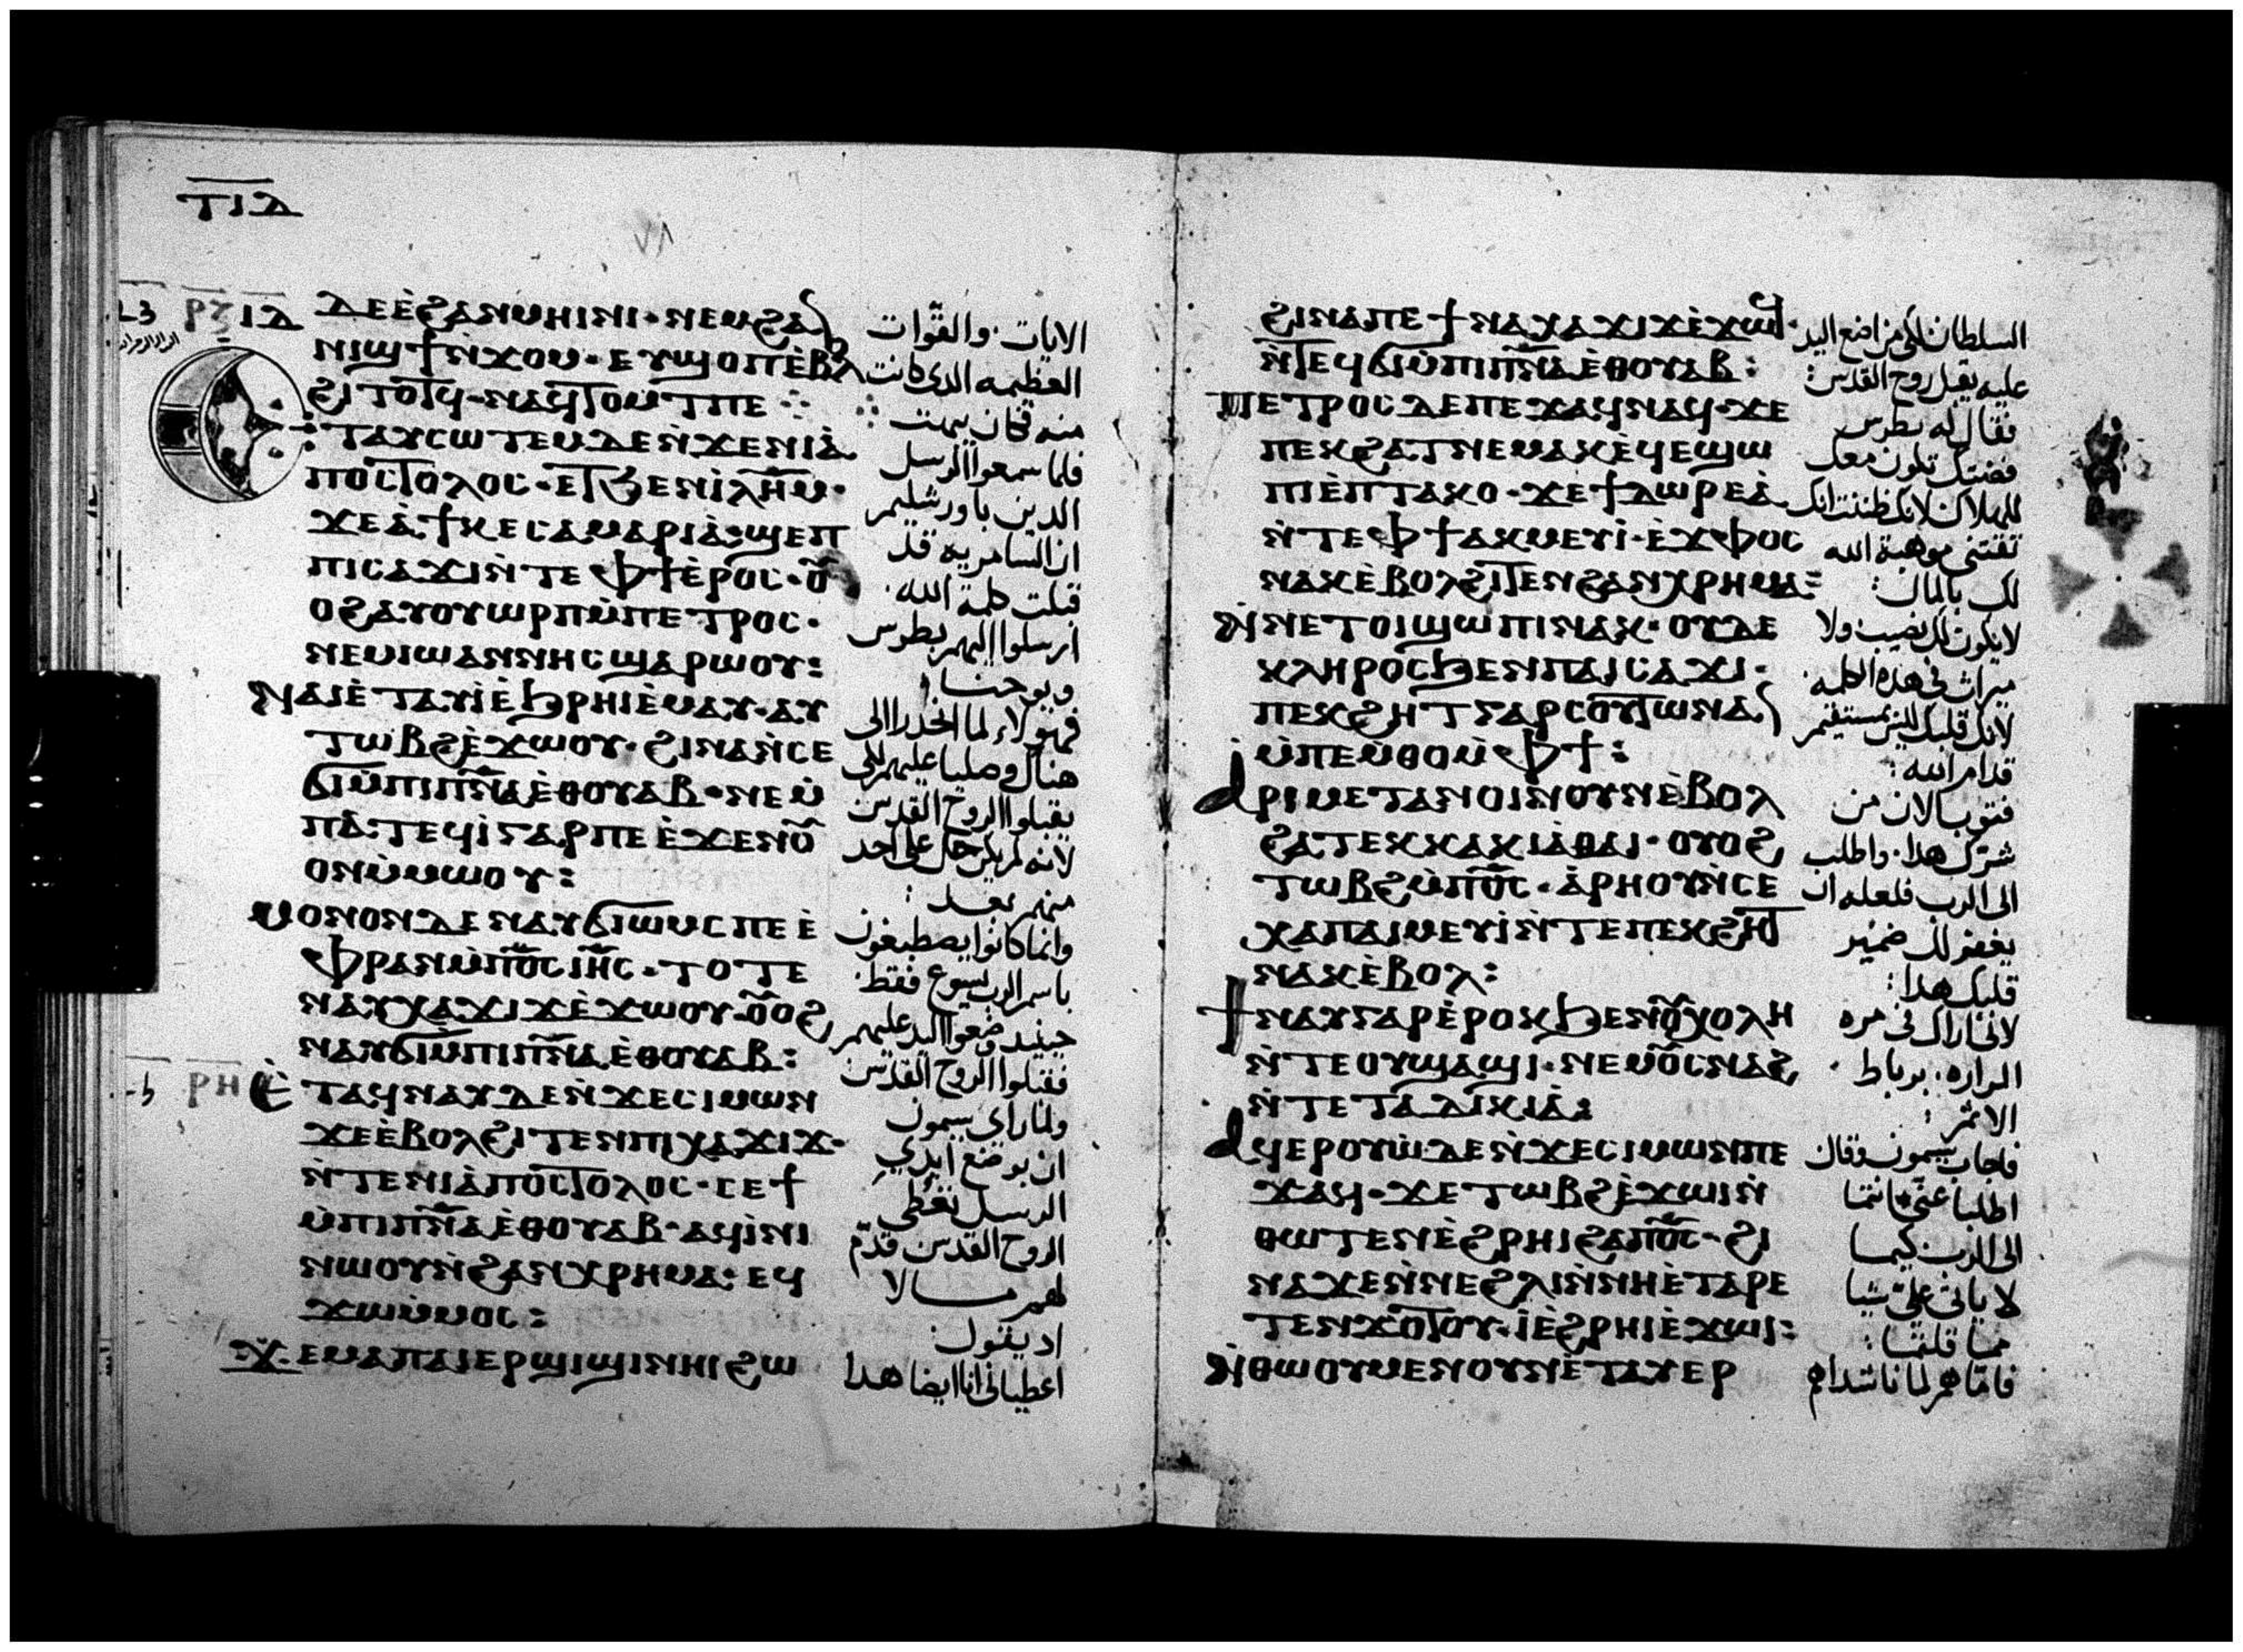 ⲧⲓⲇ
ⲇⲉⲉ̀ϩⲁⲛⲙⲏⲓⲛⲓ· ⲛⲉⲙϩⲁ
ⲛⲓϣϯⲛ̀ϫⲟⲙ· ⲉⲩϣⲟⲡⲉ̀ⲃⲟⲗ
ϩⲓⲧⲟⲧϥ· ⲛⲁϥⲧⲟⲙⲧⲡⲉ
ⲉⲧⲁⲩⲥⲱⲧⲉⲙⲇⲉⲛ̀ϫⲉⲛⲓⲁ̀
ⲡⲟⲥⲧⲟⲗⲟⲥ· ⲉⲧϧⲉⲛⲓ̀ⲗ̅ⲏ̅ⲙ̅·
ϫⲉⲁ̀ϯⲕⲉⲥⲁⲙⲁⲣⲓⲁ̀: ϣⲉⲡ
ⲡⲓⲥⲁϫⲓⲛ̀ⲧⲉⲫϯⲉ̀ⲣⲟⲥ· ⲟⲩ
ⲟϩⲁⲩⲟⲩⲱⲣⲡⲙ̀ⲡⲉⲧⲣⲟⲥ·
ⲛⲉⲙⲓⲱⲁⲛⲛⲏⲥϣⲁⲣⲱⲟⲩ:
ⲛⲁⲓⲉ̀ⲧⲁⲩⲓ̀ⲉ̀ϧⲣⲏⲓⲉ̀ⲙⲁⲩ· ⲁⲩ
ⲧⲱⲃϩⲉ̀ϫⲱⲟⲩ· ϩⲓⲛⲁⲛ̀ⲥⲉ
ϭⲓⲙ̀ⲡⲓⲡ̅ⲛ̅ⲁ̅ⲉ̀ⲑⲟⲩⲁⲃ· ⲛⲉⲙ̀
ⲡⲁⲧⲉϥⲓ̀ⲅⲁⲣⲡⲉⲉ̀ϫⲉⲛⲟⲩ
ⲟⲛⲙ̀ⲙⲱⲟⲩ:
ⲙⲟⲛⲟⲛⲇⲉⲛⲁⲩϭⲓⲱⲙⲥⲡⲉⲉ̀
ⲫⲣⲁⲛⲙ̀ⲡ̅ⲟ̅ⲥ̅ⲓ̅ⲏ̅ⲥ̅· ⲧⲟⲧⲉ
ⲛⲁⲩⲭⲁϫⲓϫⲉ̀ϫⲱⲟⲩ· ⲟⲩⲟϩ
ⲛⲁⲩϭⲓⲙ̀ⲡⲓⲡ̅ⲛ̅ⲁ̅ⲉ̀ⲑⲟⲩⲁⲃ:
ⲣⲏ ⲉ̀ⲧⲁϥⲛⲁⲩⲇⲉⲛ̀ϫⲉⲥⲓⲙⲱⲛ
ϫⲉⲉ̀ⲃⲟⲗϩⲓⲧⲉⲛⲡⲓⲭⲁϫⲓϫ·
ⲛ̀ⲧⲉⲛⲓⲁ̀ⲡⲟⲥⲧⲟⲗⲟⲥ· ⲥⲉϯ
ⲙ̀ⲡⲓⲡ̅ⲛ̅ⲁ̅ⲉ̀ⲑⲟⲩⲁⲃ· ⲁϥⲓ̀ⲛⲓ
ⲛⲱⲟⲩⲛ̀ϩⲁⲛⲭⲣⲏⲙⲁ: ⲉϥ
ϫⲱⲙ̀ⲙⲟⲥ:
ϫⲉⲙⲁⲡⲁⲓⲉⲣϣⲓϣⲓⲛⲏⲓϩⲱ
الايات· والقوات
العظيمه الدى كانت
منه فكان يبهت
فلما سمعوا الرسل
الدين باورشليم
ان السامريه قد
قبلت كلمة الله·
ارسلوا اليهم بطرس
ويوحنا
فهولاء لما انحدرا الى
هناك وصليا عليهم لكى
يقبلوا الروح القدس
لانه لم يكن حل على احد
منهم بعد:
وانما كانوا يصطبغون
باسم الرب يسوع فقط·
حينيد وضعوا اليد عليهم
فقبلوا الروح القدس
ولما راى سيمون
ان بوضع ايدي
الرسل تعطى
الروح القدس قدّم
لهم مالا
اد يقول:
اعطيانى انا ايضا هدا
ϩⲓⲛⲁⲡⲉϯⲛⲁⲭⲁϫⲓϫⲉ̀ϫⲱϥ·
ⲛ̀ⲧⲉϥϭⲓⲙ̀ⲡⲓⲡ̅ⲛ̅ⲁ̅ⲉ̀ⲑⲟⲩⲁⲃ:
ⲡⲉⲧⲣⲟⲥⲇⲉⲡⲉϫⲁϥⲛⲁϥ· ϫⲉ
ⲡⲉⲕϩⲁⲧⲛⲉⲙⲁⲕⲉ̀ϥⲉϣⲱ
ⲡⲓⲉ̀ⲡⲧⲁⲕⲟ· ϫⲉϯⲇⲱⲣⲉⲁ̀
ⲛ̀ⲧⲉⲫϯⲁⲕⲙⲉⲩⲓ̀· ⲉ̀ϫⲫⲟⲥ
ⲛⲁⲕⲉ̀ⲃⲟⲗϩⲓⲧⲉⲛϩⲁⲛⲭⲣⲏⲙⲁ:
ⲛ̀ⲛⲉⲧⲟⲓϣⲱⲡⲓⲛⲁⲕ· ⲟⲩⲇⲉ
ⲕⲗⲏⲣⲟⲥϧⲉⲛⲡⲁⲓⲥⲁϫⲓ·
ⲡⲉⲕϩⲏⲧⲅⲁⲣⲥⲟⲩⲧⲱⲛⲁⲛ
ⲙ̀ⲡⲉⲙ̀ⲑⲟⲙ̀ⲫϯ:
ⲁⲣⲓⲙⲉⲧⲁⲛⲟⲓⲛⲟⲩⲛⲉ̀ⲃⲟⲗ
ϩⲁⲧⲉⲕⲕⲁⲕⲓⲁ̀ⲑⲁⲓ· ⲟⲩⲟϩ
ⲧⲱⲃϩⲙ̀ⲡ̅ⲟ̅ⲥ̅· ⲁ̀ⲣⲏⲟⲩⲛ̀ⲥⲉ
ⲭⲁⲡⲁⲓⲙⲉⲩⲓ̀ⲛ̀ⲧⲉⲡⲉⲕϩⲏⲧ
ⲛⲁⲕⲉ̀ⲃⲟⲗ:
ϯⲛⲁⲩⲅⲁⲣⲉ̀ⲣⲟⲕϧⲉⲛⲟⲩⲭⲟⲗⲏ
ⲛ̀ⲧⲉⲟⲩϣⲁϣⲓ· ⲛⲉⲙⲟⲩⲥⲛⲁϩ
ⲛ̀ⲧⲉⲧⲁⲇⲓⲕⲓⲁ̀:
ⲁϥⲉⲣⲟⲩⲱ̀ⲇⲉⲛ̀ϫⲉⲥⲓⲙⲱⲛⲡⲉ
ϫⲁϥ· ϫⲉⲧⲱⲃϩⲉ̀ϫⲱⲓⲛ̀
ⲑⲱⲧⲉⲛⲉ̀ϩⲣⲏⲓϩⲁⲡ̅ⲟ̅ⲥ̅· ϩⲓ
ⲛⲁϫⲉⲛ̀ⲛⲉϩⲗⲓⲛ̀ⲛⲏⲉ̀ⲧⲁⲣⲉ
ⲧⲉⲛϫⲟⲧⲟⲩ· ⲓ̀ⲉ̀ϩⲣⲏⲓⲉ̀ϫⲱⲓ:
ⲛ̀ⲑⲱⲟⲩⲙⲉⲛⲟⲩⲛⲉ̀ⲧⲁⲩⲉⲣ
السلطان لكى من اضع اليد
عليه يقبل روح القدس:
فقال له بطرس
فضتك تكون معك
للهلاك لانك ظننت انك
تقتنى موهبة الله
لك بالمال:
لا يكون لك نصيب ولا
ميراث فى هذه الكلمة·
لانك قلبك ليس بمستقيم
قدام الله:
فتوب الان من
شرك هدا· واطلب
الى الرب فلعله ان
يغفر لك ضمير
قلبك هدا:
لانى اراك فى مره
المراره· برباط
الاثم:
فاجاب سيمون وقال
اطلبا عنى انتما
الى الرب كيما
لا ياتى علىّ شيا
مما قلتما:
فاما هم لما ناشداهم